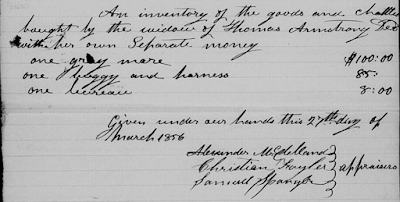 An inventory of the goods and chattles
bought by the widow of Thomas Armstrong Decd
with her own Separate money
one gray mare $100:00
one buggy and harness 85:
one bureau 8:00
Given under our hands this 27th day of
March 1856
Alexander McClelland
Christian
Samuel Spangler
appraisers